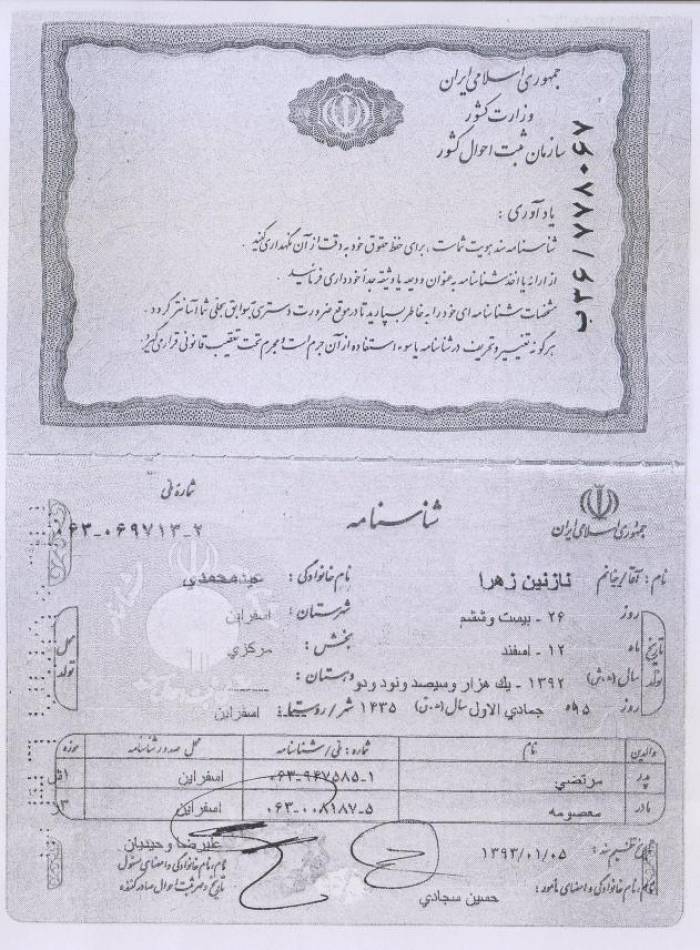 جمهوری اسلامی ایران
وزارت کشور
سازمان ثبت احوال کشور
ب۳۶/۷۷۸۰۶۷
یادآوری :
شناسنامه سند هویت شماست ، برای حفظ حقوق خود به دقت از آن نگهداری کنید .
از ارائه یا اخذ شناسنامه به عنوان ودیعه یا وثیقه جداً خودداری فرمائید .
مشخصات شناسنامه ای خود را به خاطر بسپارید تا در موقع ضرورت دسترسی به سوابق سجلی شما آسانتر گردد .
هرگونه تغییر و تحریف در شناسنامه یا سوء استفاده از آن جرم است و مجرم تحت تعقیب قانونی قرار می گیرد.
جمهوری اسلامی ایران
شناسنامه
شماره ملی
۰۶۳-۰۶۹۷۱۳-۲
نام : آقا/خانم نازنین زهرا نام خانوادگی : عیدمحمدی
تاریخ تولد محل تولد
روز ۲۶ - بیست وششم شهرستان : اسفراین
ماه ۱۲ - اسفند بخش : مرکزي
سال (ه.ش) ۱۳۹۲ - یك هزار وسیصد ونود ودو دهستان :
روز ۵ ماه جمادي الاول سال (ه.ق) ۱۴۳۵ شهر/روستا : اسفراین
والدین نام شماره : ملی/شناسنامه محل صدور شناسنامه حوزه
پدر مرتضي ۰۶۳-۹۴۷۵۸۵-۱ اسفراین
مادر معصومه ۰۶۳-۰۰۸۱۸۷-۵ اسفراین
تاریخ تنظیم سند : ۱۳۹۳/۰۱/۰۵
علیرضا وحیدیان
نام ، نام خانوادگی و امضای مسئول
نام ، نام خانوادگی و امضای مأمور : حسین سجادي
تاریخ و مهر ثبت احوال صادر کننده